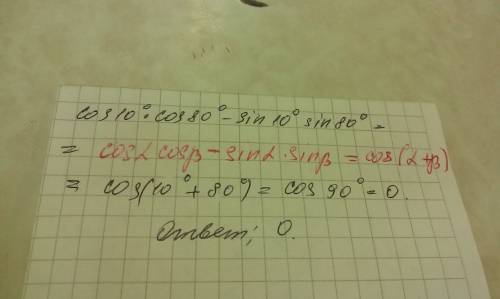 cos10°·cos80° - sin10° sin80° =
= cosα cosβ - sinα·sinβ = cos(α+β)
= cos(10° + 80°) = cos 90° = 0.
Ответ; 0.